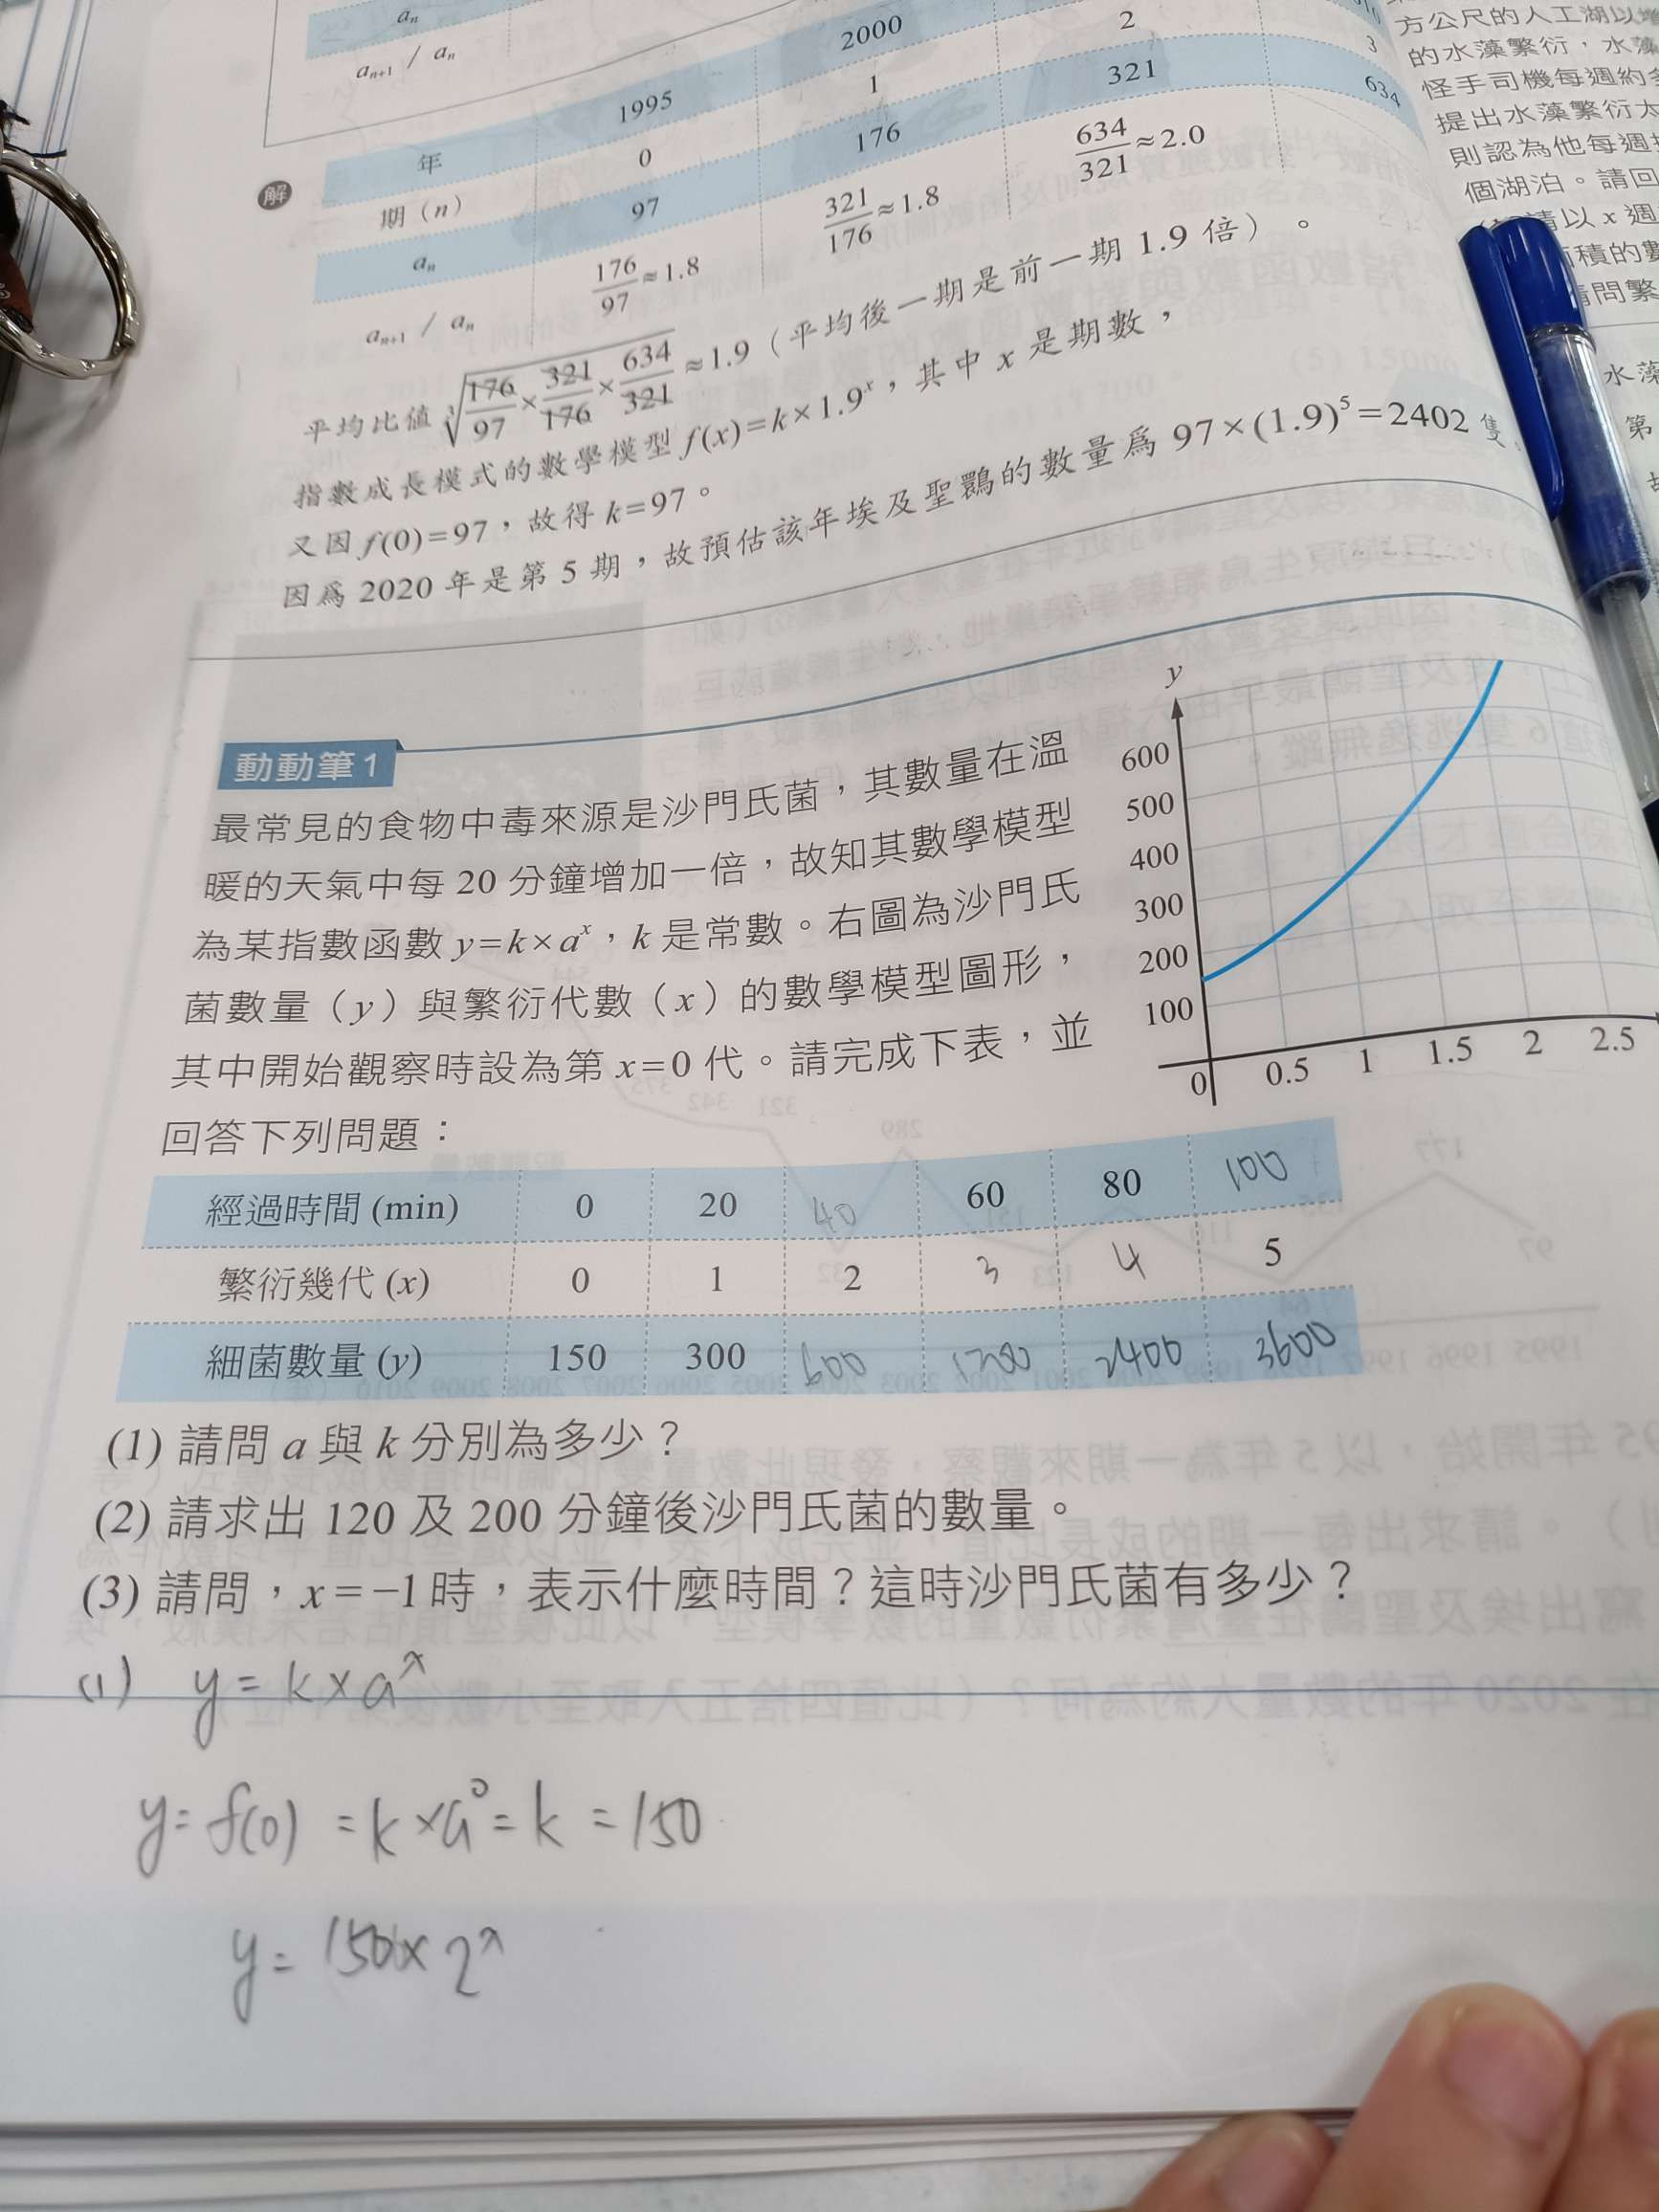 aₙ
aₙ₊₁ / aₙ
解
年 1995 2000
期（n） 0 1 2 3
aₙ 97 176 321 634
aₙ₊₁ / aₙ 176/97≈1.8 321/176≈1.8 634/321≈2.0
平均比值 ³√(176/97×321/176×634/321)≈1.9（平均後一期是前一期 1.9 倍）。
指數成長模式的數學模型 f(x)=k×1.9ˣ，其中 x 是期數，
又因 f(0)=97，故得 k=97。
因為 2020 年是第 5 期，故預估該年埃及聖䴉的數量為 97×(1.9)⁵=2402 隻。
方公尺的人工湖以
的水藻繁衍，水藻
怪手司機每週約
提出水藻繁衍太
則認為他每週
個湖泊。請回
請以 x 週
積的
請問繁
水藻
第
動動筆 1
最常見的食物中毒來源是沙門氏菌，其數量在溫
暖的天氣中每 20 分鐘增加一倍，故知其數學模型
為某指數函數 y=k×aˣ，k 是常數。右圖為沙門氏
菌數量（y）與繁衍代數（x）的數學模型圖形，
其中開始觀察時設為第 x=0 代。請完成下表，並
回答下列問題：
y
600
500
400
300
200
100
0 0.5 1 1.5 2 2.5
經過時間 (min) 0 20 40 60 80 100
繁衍幾代 (x) 0 1 2 3 4 5
細菌數量 (y) 150 300 600 1200 2400 3600
(1) 請問 a 與 k 分別為多少？
(2) 請求出 120 及 200 分鐘後沙門氏菌的數量。
(3) 請問，x=−1 時，表示什麼時間？這時沙門氏菌有多少？
(1) y=k×aˣ
y=f(0)=k×a⁰=k=150
y=150×2ˣ